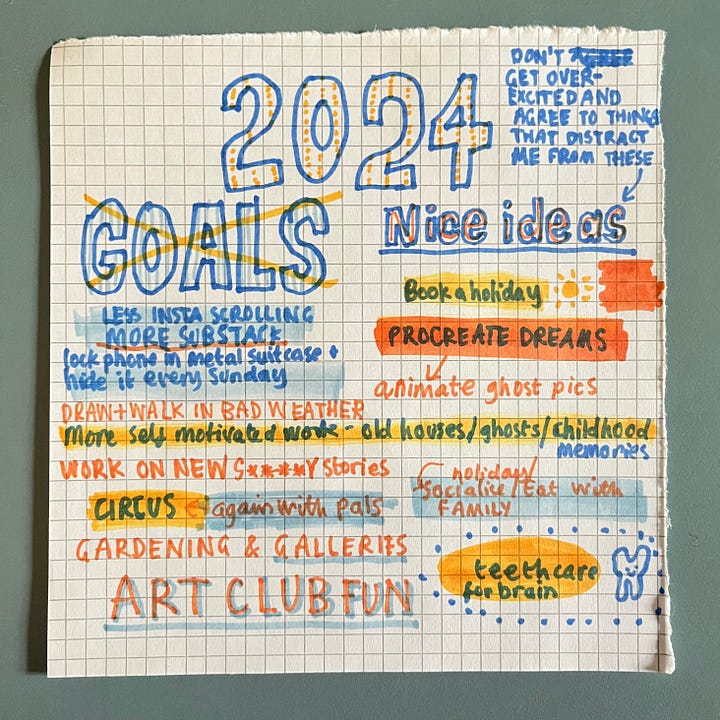 2024
DON'T
GET OVER-
EXCITED AND
AGREE TO THINGS
THAT DISTRACT
ME FROM THESE
GOALS
Nice ideas
LESS INSTA SCROLLING
MORE SUBSTACK
lock phone in metal suitcase +
hide it every Sunday
Book a holiday
PROCREATE DREAMS
animate ghost pics
DRAW+WALK IN BAD WEATHER
More self motivated work - old houses/ghosts/childhood
memories
WORK ON NEW S****Y stories
holiday/
Socialise/Eat with
FAMILY
CIRCUS again with pals
GARDENING & GALLERIES
teethcare
for brain
ART CLUB FUN